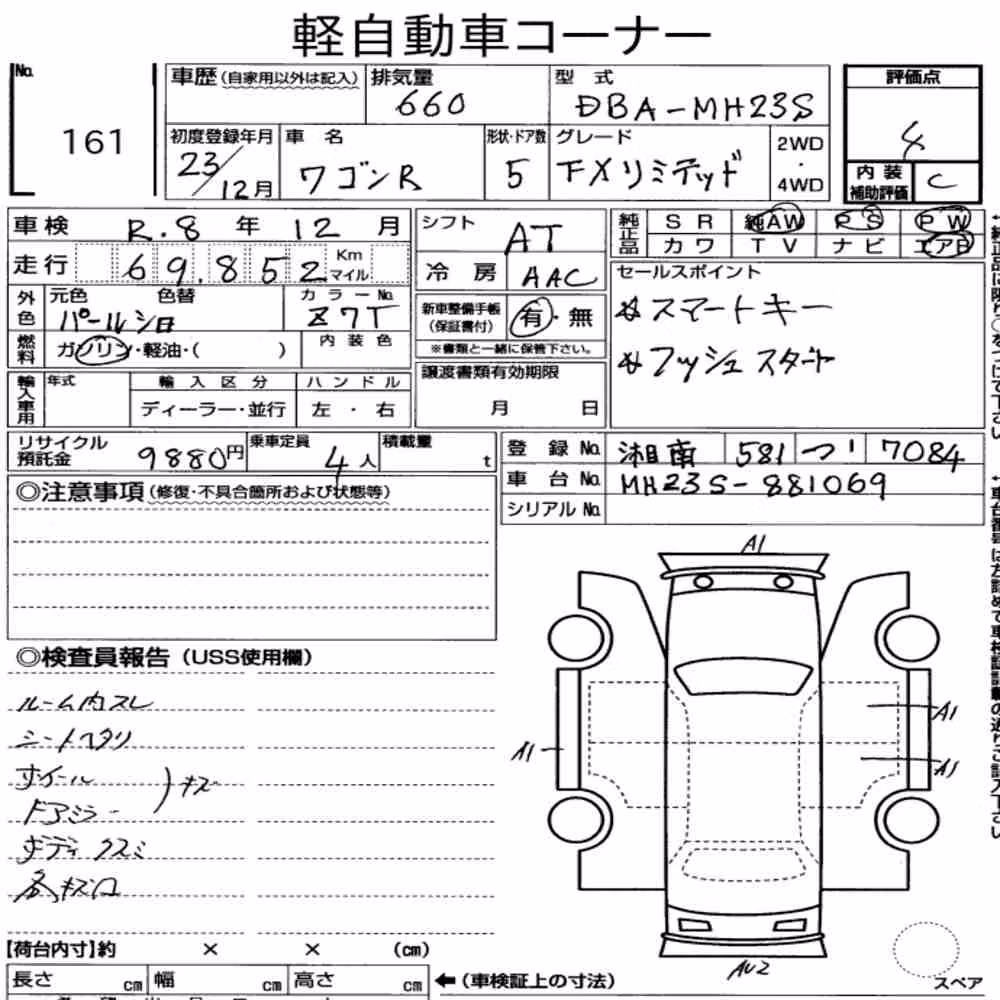 軽自動車コーナー
No. 161
車歴 (自家用以外は記入)
排気量 660
型式 DBA-MH23S
評価点 4
初度登録年月 23/12月
車名 ワゴンR
形状・ドア数 5
グレード FXリミテッド
2WD・4WD
内装補助評価 C
車検 R.8年12月
走行 69.852 Km マイル
外色 元色 パールシロ 色替
カラーNo. Z7T
燃料 ガソリン・軽油・( )
内装色
輸入車用 年式 輸入区分 ディーラー・並行 ハンドル 左・右
シフト AT
冷房 AAC
新車整備手帳(保証書付) 有・無
※書類と一緒に保管下さい。
譲渡書類有効期限
月 日
純正品 SR 純AW PS PW
カワ TV ナビ エアB
セールスポイント
*スマートキー
*プッシュスタート
リサイクル預託金 9880円
乗車定員 4人
積載量 t
登録No. 湘南 581 つ 7084
車台No. MH23S-881069
シリアルNo.
◎注意事項(修復・不具合箇所および状態等)
◎検査員報告(USS使用欄)
ルーム内スレ
シートヘタリ
ホイール
ドアミラー
)キズ
ボディクスミ
各キズ凹
A1
A1
A1
A1
AU2
スペア
【荷台内寸】約 × × (cm)
長さ cm 幅 cm 高さ cm
←(車検証上の寸法)